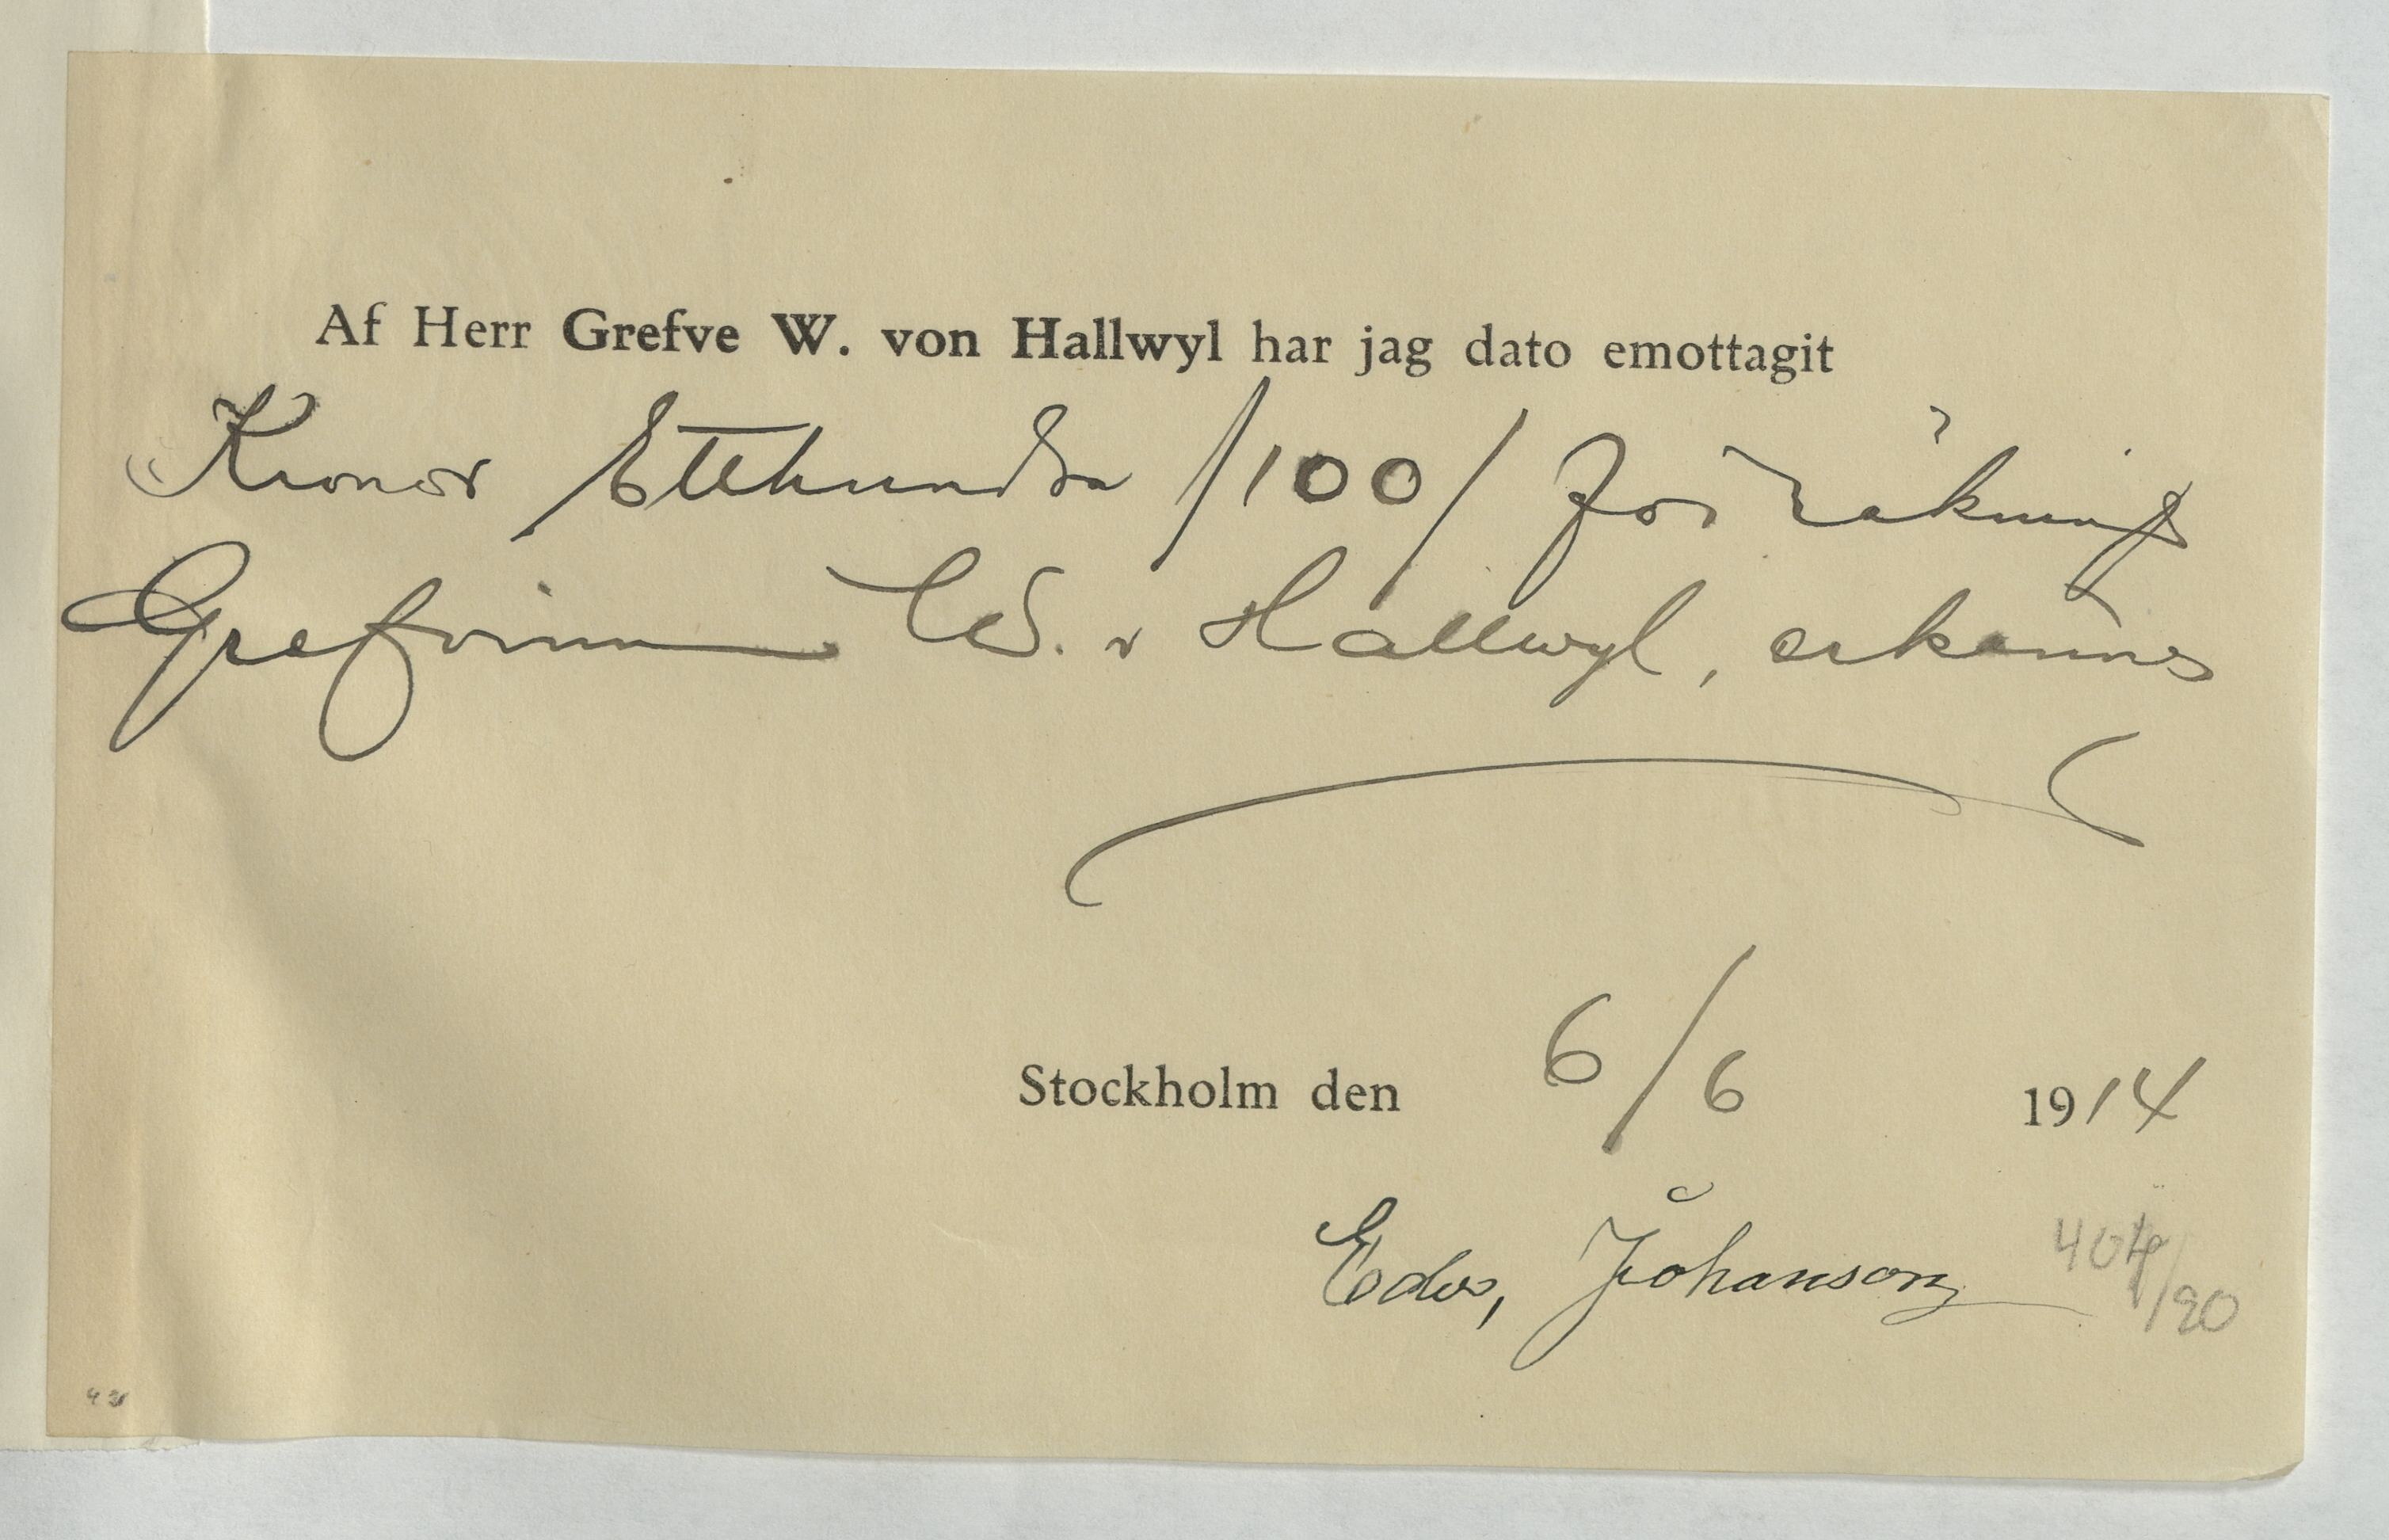 Af Herr Grefve W. von Hallwyl har jag dato emottagit
Kronor Etthundra /100/ för räkning
Grefvinnan W. v Hallwyl, erkännes
Stockholm den 6/6 1914
Edv, Johanson